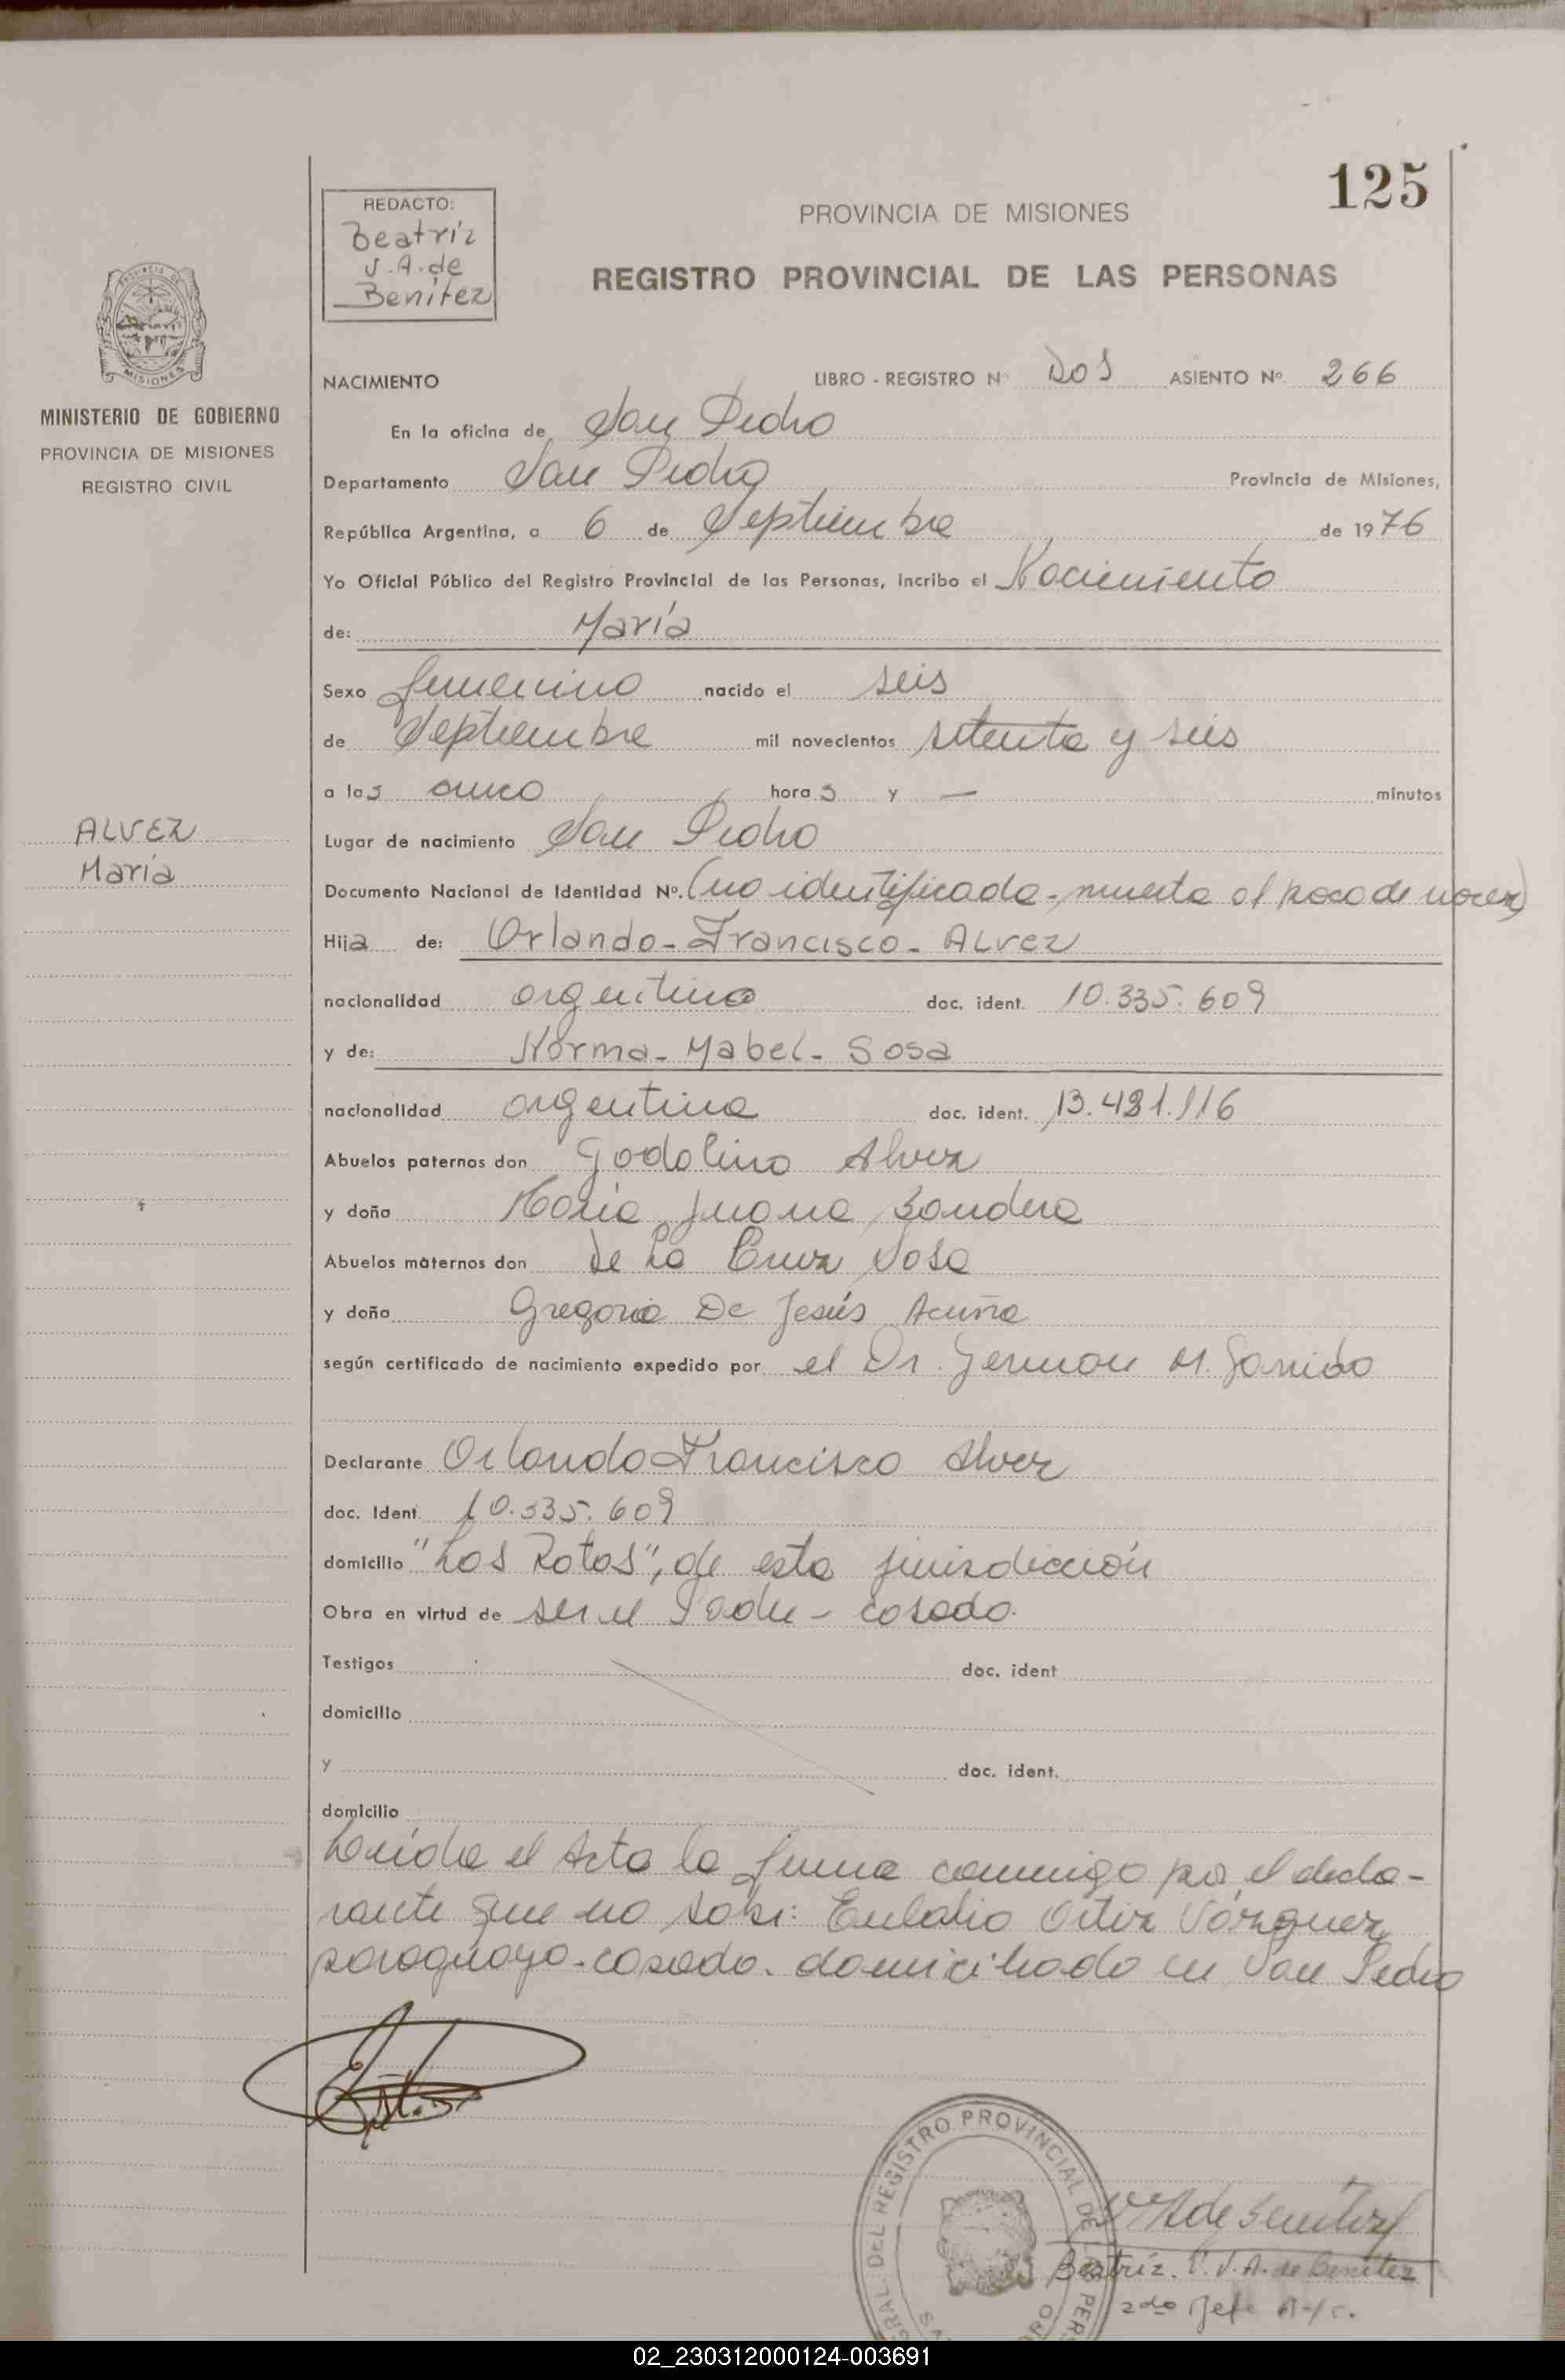 125
REDACTO:
Beatríz
V.A.de
Benítez
PROVINCIA DE MISIONES
REGISTRO PROVINCIAL DE LAS PERSONAS
MISIONES
MINISTERIO DE GOBIERNO
PROVINCIA DE MISIONES
REGISTRO CIVIL
NACIMIENTO LIBRO - REGISTRO Nº Dos ASIENTO Nº 266
En la oficina de San Pedro
Departamento San Pedro Provincia de Misiones,
República Argentina, a 6 de Septiembre de 1976
Yo Oficial Público del Registro Provincial de las Personas, incribo el Nacimiento
de: María
Sexo femenino nacido el seis
de Septiembre mil novecientos setenta y seis
a las cinco horas y — minutos
ALVEZ
María
Lugar de nacimiento San Pedro
Documento Nacional de Identidad Nº. (no identificada-, muerta al poco de nacer)
Hija de: Orlando-Francisco- Alvez
nacionalidad argentino doc. ident. 10.335.609
y de: Norma- Mabel- Sosa
nacionalidad argentina doc. ident. 13.481.116
Abuelos paternos don Godolino Alvez
y doña María Juana Bandera
Abuelos maternos don De La Cruz Sosa
y doña Gregoria De Jesús Acuña
según certificado de nacimiento expedido por el Dr. German M. Garrido
Declarante Orlando Francisco Alvez
doc. Ident. 10.335.609
domicilio "Los Ratos", de esta jurisdicción
Obra en virtud de ser el Padre - casado.
Testigos doc. ident
domicilio
y doc. ident.
domicilio
Leída el Acta la firma conmigo por el decla-
rante que no sabe: Eulalio Ortiz Vázquez
paraguayo-casado. domiciliado en San Pedro
DEL REGISTRO PROVINCIAL DE
V A de Benítez
Beatríz. V. V. A. de Benítez
2do Jefe A-/c.
02_230312000124-003691